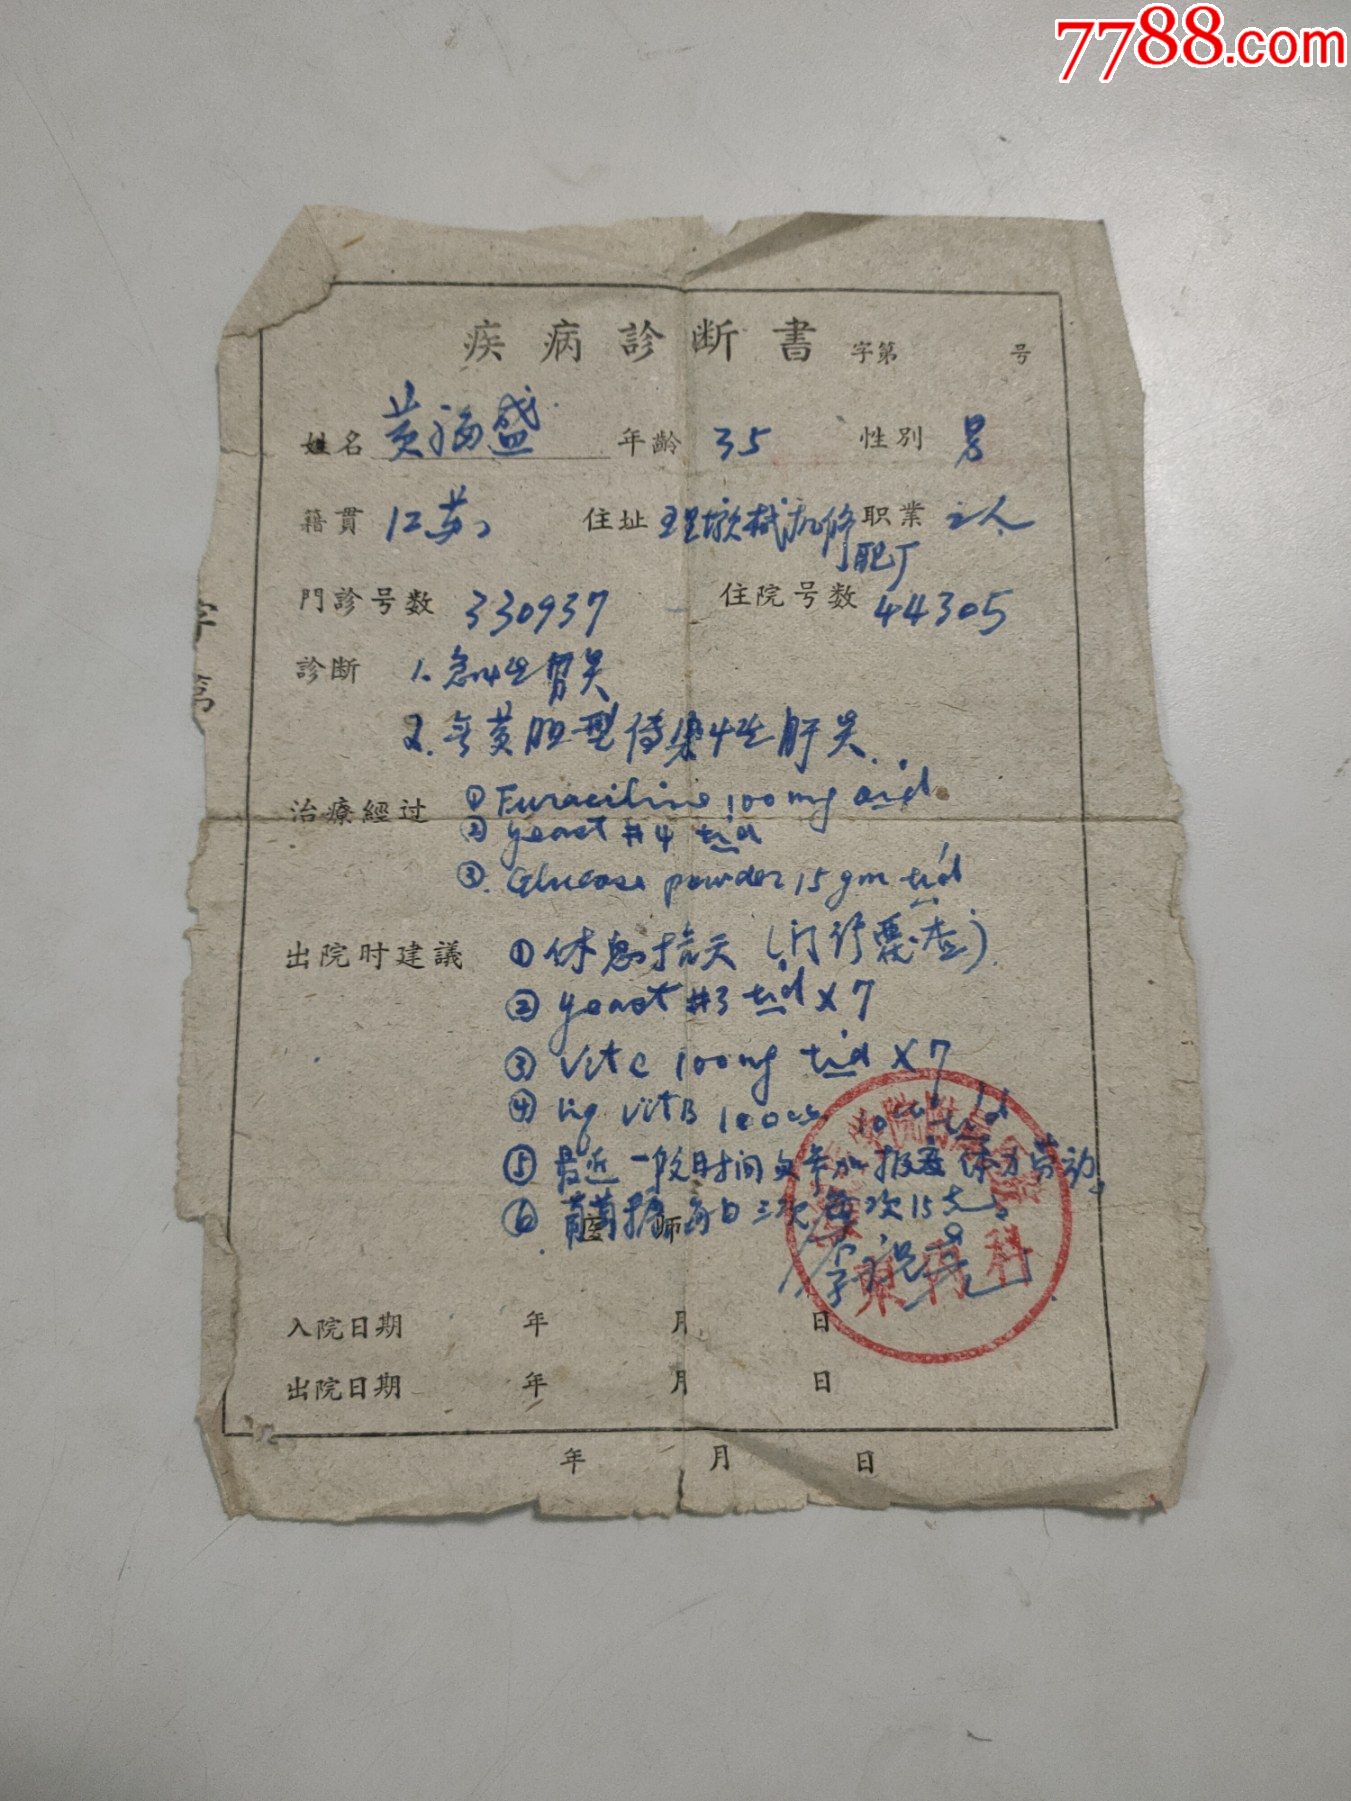 7788.com
疾病診断書 字第 号
姓名 黄海盛 年齡 35 性別 男
籍貫 江苏 住址 机修 职業 工人
門診号数 330937 住院号数 44305
字第
診断 1. 急性胃炎
2. 无黄胆型传染性肝炎.
治療經过 ① Furaciline 100mg
② yeast #4 tid
③. Glucose powder 15gm tid
出院时建議 ① 休息 天 (门诊复查)
② yeast #3 tid x 7
③ Vit C 100mg tid x 7
④ liq Vit B 100cc 10cc tid
⑤ 最近一段时间 体力劳动。
⑥ 葡萄糖每日三次每次15克。
医師 李
科
入院日期 年 月 日
出院日期 年 月 日
年 月 日